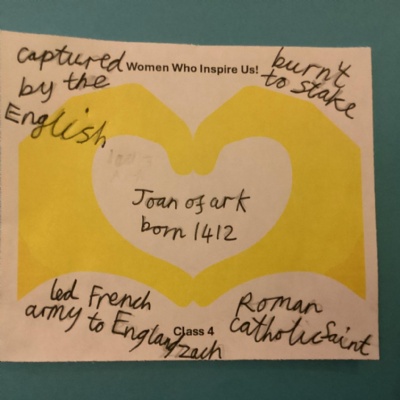 captured
by the
English
Women Who Inspire Us!
burnt
to stake
Joan of ark
born 1412
led French
army to England
Roman
catholic Saint
Class 4
zach